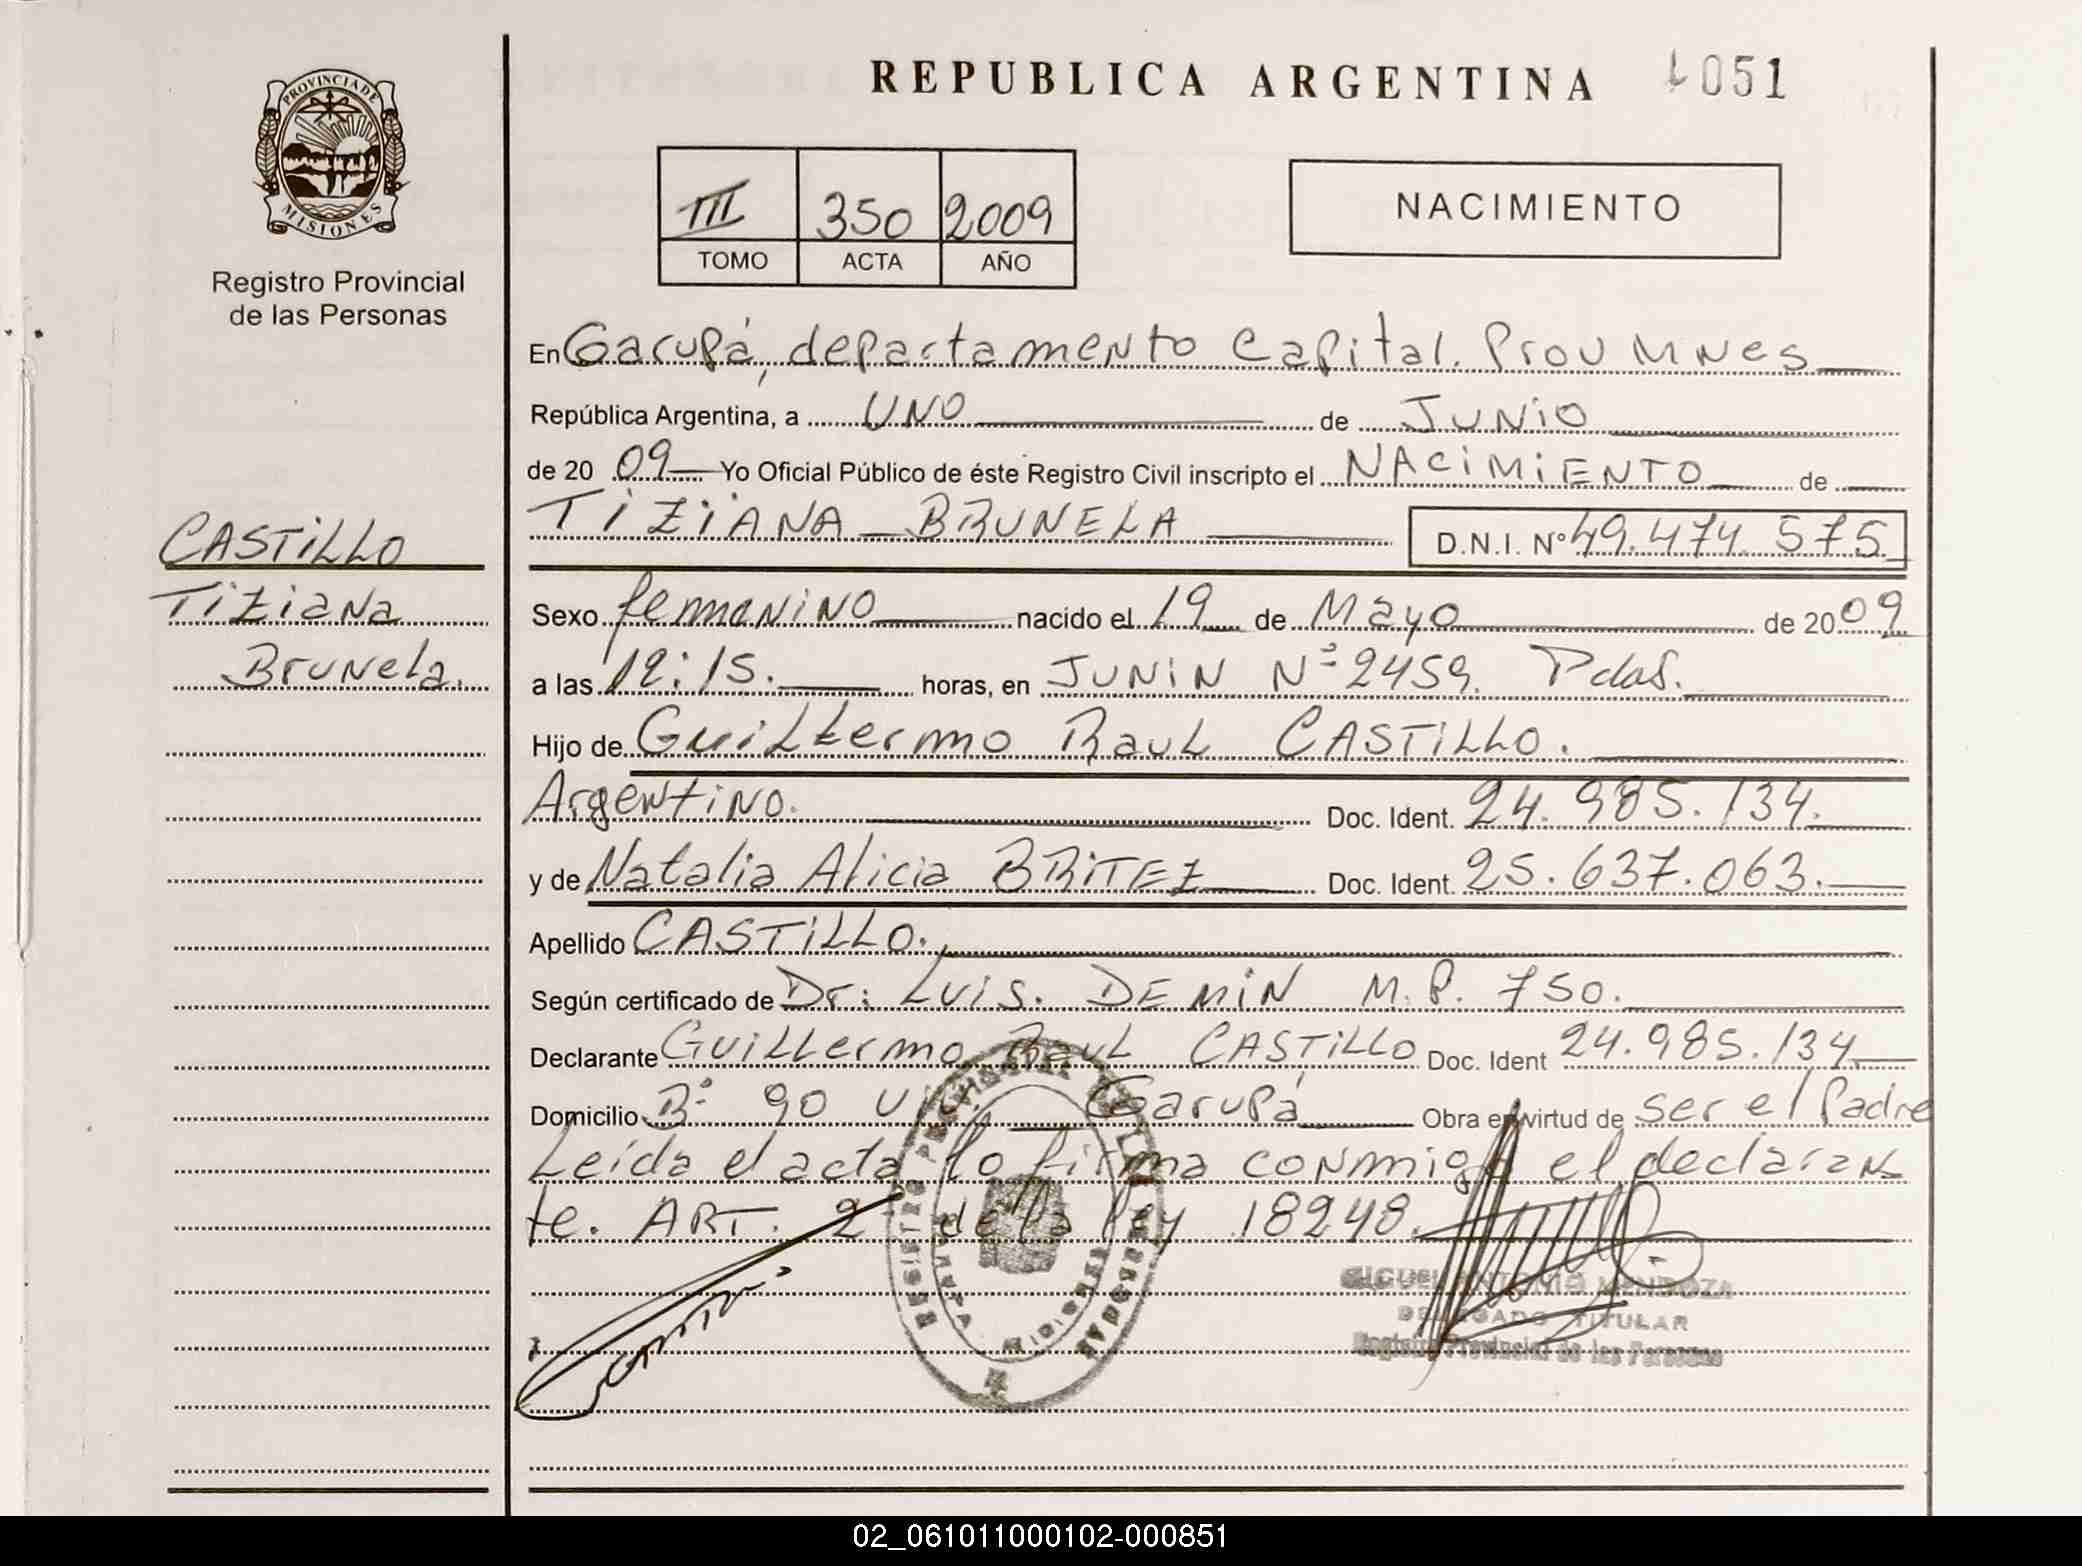 REPUBLICA ARGENTINA
051
PROVINCIA DE
MISIONES
Registro Provincial
de las Personas
III 350 2009
TOMO ACTA AÑO
NACIMIENTO
En Garupá, departamento Capital. Prov Mnes
República Argentina, a UNO de JUNIO
de 20 09 Yo Oficial Público de éste Registro Civil inscripto el NACIMIENTO de
TIZIANA BRUNELA D.N.I. Nº 49.474.575
CASTILLO
Tiziana
Brunela.
Sexo femenino nacido el 19 de Mayo de 2009
a las 12:15. horas, en JUNIN Nº 2459. Pdas.
Hijo de Guillermo Raul CASTILLO.
Argentino. Doc. Ident. 24.985.134.
y de Natalia Alicia BRITEZ Doc. Ident. 25.637.063.
Apellido CASTILLO.
Según certificado de Dr: Luis. DEMIN M.P. 750.
Declarante Guillermo Raul CASTILLO Doc. Ident 24.985.134
Domicilio Bº 90 Garupá Obra en virtud de ser el Padre
Leída el acta lo firma conmigo el declaran
te. ART. 2 de la ley 18248.
MIGUEL ANTONIO MENDOZA
DELEGADO TITULAR
Registro Provincial de las Personas
02_061011000102-000851